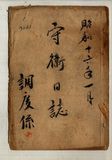 昭和十六年一月
守衛日誌
調度係